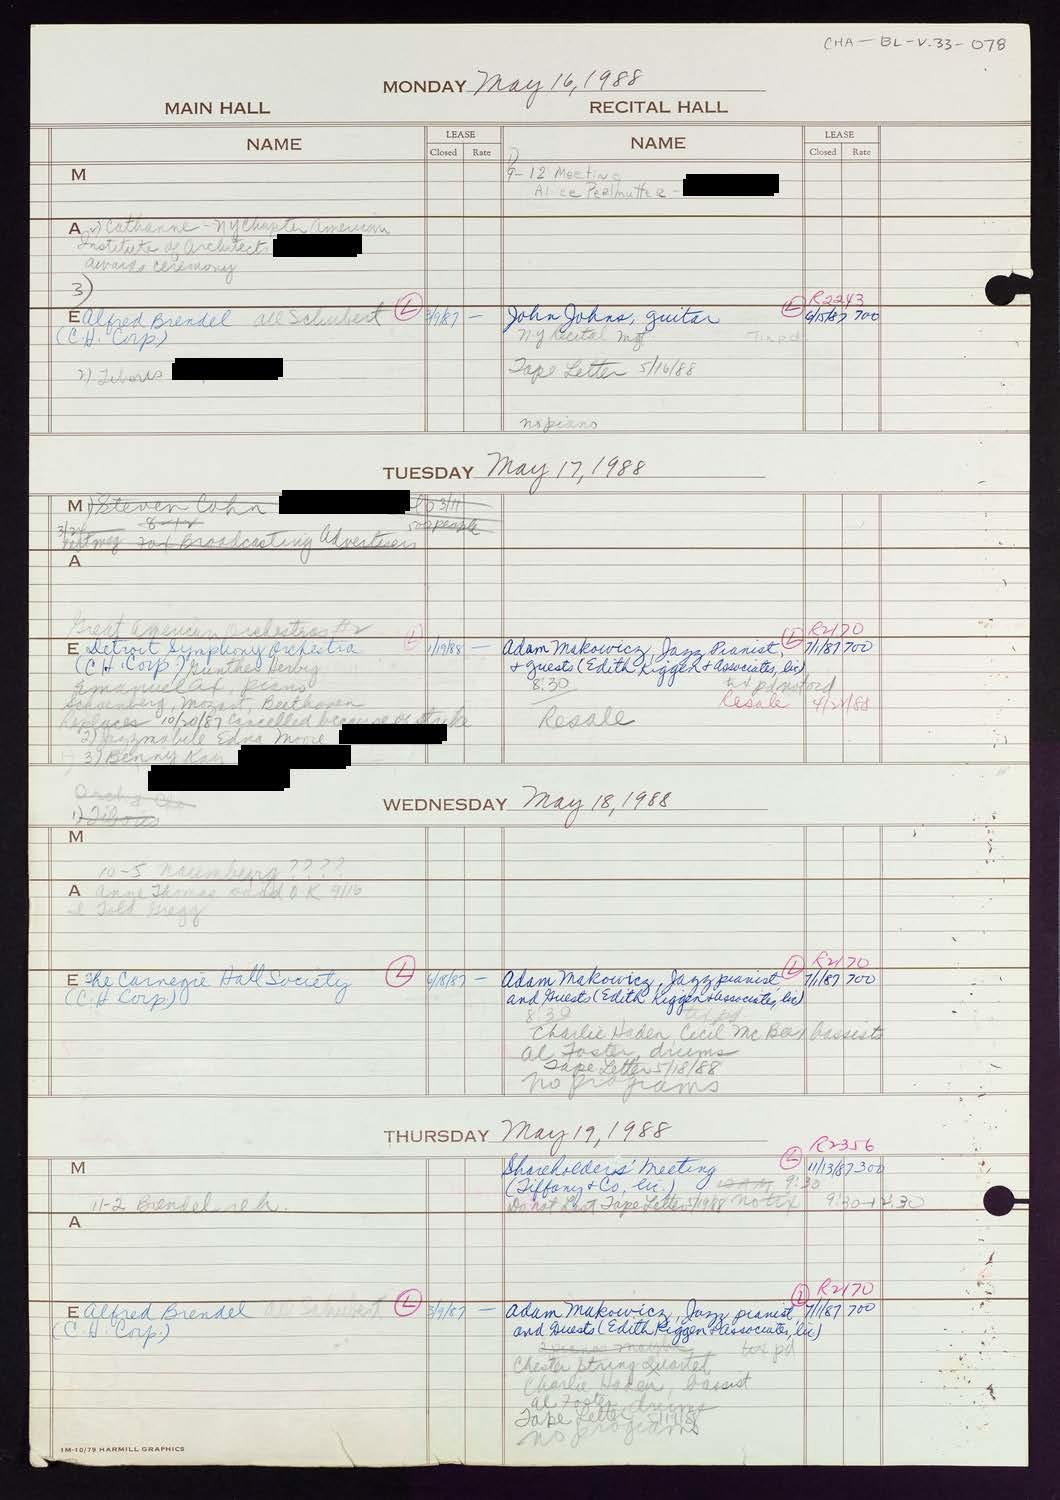 CHA-BL-V.33-078
MONDAY May 16, 1988
MAIN HALL RECITAL HALL
NAME LEASE Closed Rate NAME LEASE Closed Rate
M
9-12 Meeting
Alice Perlmutter -
A
NY Chapter American
Institute of Architects
awards ceremony
3)
E Alfred Brendel all Schubert L 3/9/87 —
(C.H. Corp)
2) Tiboris
John Johns, guitar L R2243 6/15/87 700
NY Recital Mgt
Tape Letter 5/16/88
no piano
TUESDAY May 17, 1988
M 1) Steven Cohn 3/11
8-12 500 people
Broadcasting Advertisers
A
Great American Orchestras #2
E Detroit Symphony Orchestra L 1/19/88 —
(C.H. Corp) Gunther Herbig
Emanuel Ax, piano
Schoenberg, Mozart, Beethoven
Replaces 10/20/87 cancelled because of strike
2) Jazzmobile Edna
3) Benny Kay
Adam Makowicz, Jazz Pianist, L R2170 7/1/87 700
+ guests (Edith Kiggen & Associates, Inc)
8:30
Resale Resale 4/21/88
Orch
1) Tiboris
WEDNESDAY May 18, 1988
M
10-5 Naumburg ????
A Anne Thomas O.K. 9/16
I Told Gregg
E The Carnegie Hall Society L 6/18/87 —
(C.H. Corp)
Adam Makowicz, Jazz pianist L R2170 7/1/87 700
and Guests (Edith Kiggen & Associates, Inc)
8:30 txt pd
Charlie Haden, Cecil McBee, bassists
Al Foster, drums
Tape Letter 5/18/88
no programs
THURSDAY May 19, 1988
M
11-2 Brendel reh.
Shareholders' Meeting L R2356 11/13/87 300
(Tiffany & Co, Inc.) 9:30
Do not List Tape Letter 5/19/88 no tix 9:30-12:30
A
E Alfred Brendel all Schubert L 3/9/87 —
(C.H. Corp.)
Adam Makowicz, Jazz pianist L R2170 7/1/87 700
and Guests (Edith Kiggen & Associates, Inc)
txt pd
Chester String Quartet
Charlie Haden, bassist
Al Foster, drums
Tape Letter 5/19/88
no programs
1M-10/79 HARMILL GRAPHICS